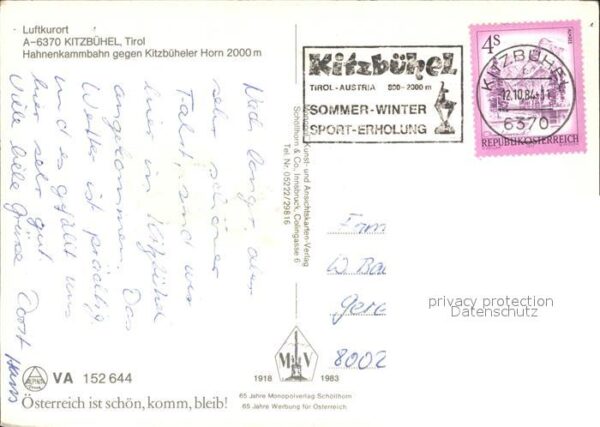 Luftkurort
A-6370 KITZBÜHEL, Tirol
Hahnenkammbahn gegen Kitzbüheler Horn 2000 m
Kitzbühel
TIROL-AUSTRIA 800-2000 m
SOMMER-WINTER
SPORT-ERHOLUNG
4S
KITZBÜHEL
12.10.84-11
6370
REPUBLIK ÖSTERREICH
Nach langer, aber
sehr schöner
Fahrt, sind wir
hier in Kitzbühel
angekommen. Das
Wetter ist prächtig
und es gefällt uns
hier sehr gut
Viele liebe Grüsse
Hans
Monopol Kunst- und Ansichtskarten-Verlag
Schöllhorn & Co., Innsbruck, Colingasse 6
Tel. Nr. 05222/29816
Fam
W. Bau
Gere
8002
privacy protection
Datenschutz
M V
1918 1983
65 Jahre Monopolverlag Schöllhorn
65 Jahre Werbung für Österreich
ALPINA
VA 152 644
Österreich ist schön, komm, bleib!